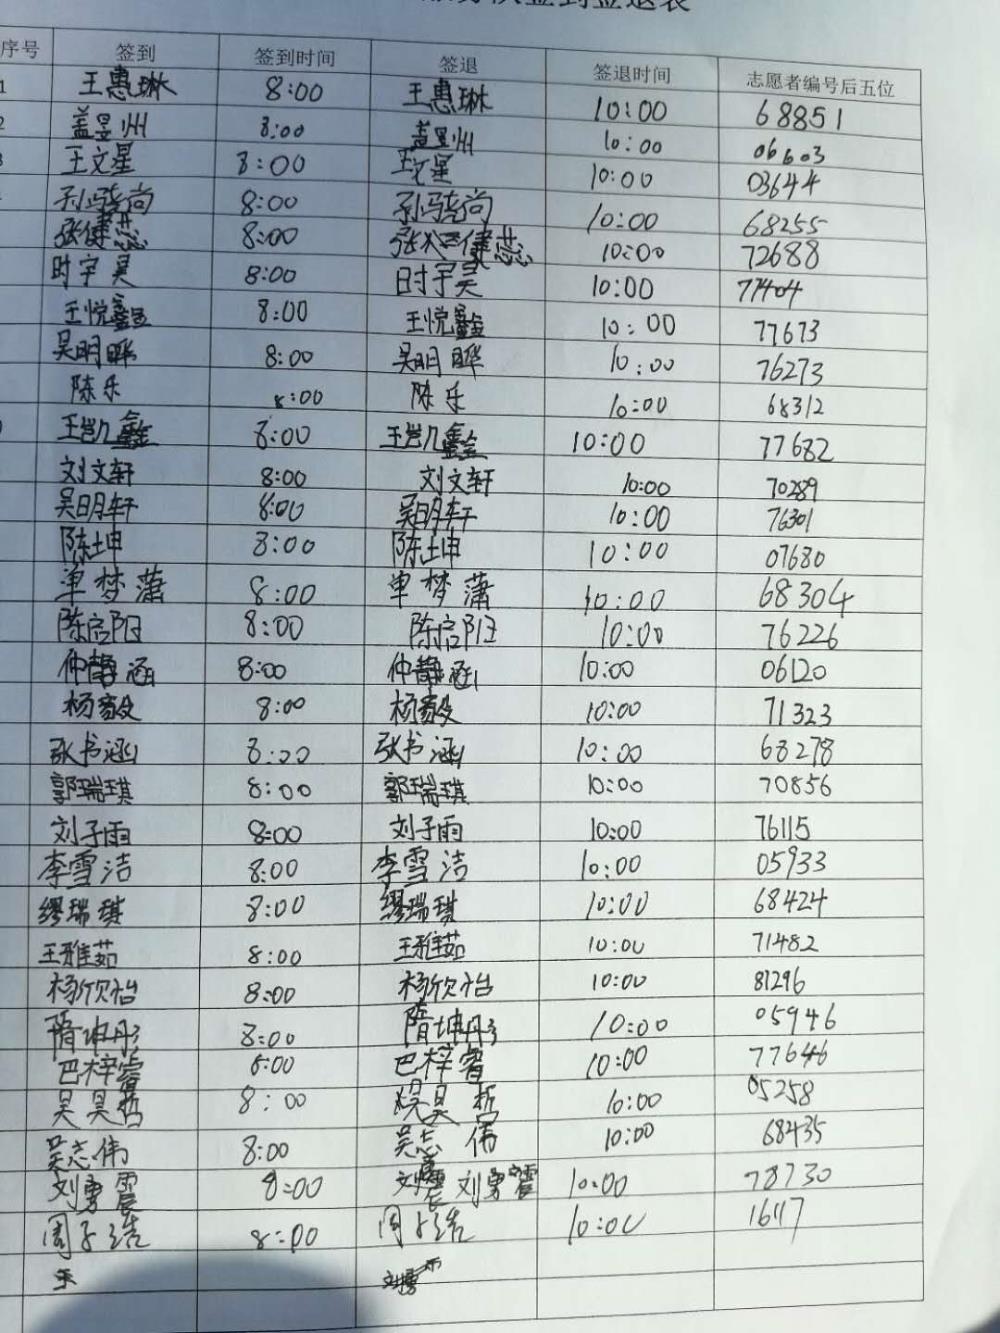 签到签退表
序号 签到 签到时间 签退 签退时间 志愿者编号后五位
1 王惠琳 8:00 王惠琳 10:00 68851
2 盖昱州 8:00 盖昱州 10:00 06603
3 王文星 8:00 王文星 10:00 03644
孙骑尚 8:00 孙骑尚 10:00 68255
张健蕊 8:00 张健蕊 10:00 72688
时宇昊 8:00 时宇昊 10:00 77404
王悦鑫 8:00 王悦鑫 10:00 77673
吴明晔 8:00 吴明晔 10:00 76273
陈乐 8:00 陈乐 10:00 68312
王凯鑫 8:00 王凯鑫 10:00 77682
刘文轩 8:00 刘文轩 10:00 70289
吴明轩 8:00 吴明轩 10:00 76301
陈坤 8:00 陈坤 10:00 07680
单梦潇 8:00 单梦潇 10:00 68304
陈启阳 8:00 陈启阳 10:00 76226
仲静涵 8:00 仲静涵 10:00 06120
杨毅 8:00 杨毅 10:00 71323
张书涵 8:00 张书涵 10:00 68278
郭瑞琪 8:00 郭瑞琪 10:00 70856
刘子雨 8:00 刘子雨 10:00 76115
李雪洁 8:00 李雪洁 10:00 05933
缪瑞琪 8:00 缪瑞琪 10:00 68424
王雅茹 8:00 王雅茹 10:00 71482
杨欣怡 8:00 杨欣怡 10:00 81296
隋坤彤 8:00 隋坤彤 10:00 05946
巴梓睿 8:00 巴梓睿 10:00 77646
吴昊哲 8:00 吴昊哲 10:00 05258
吴志伟 8:00 吴志伟 10:00 68435
刘勇震 8:00 刘勇震 10:00 78730
周子浩 8:00 周子浩 10:00